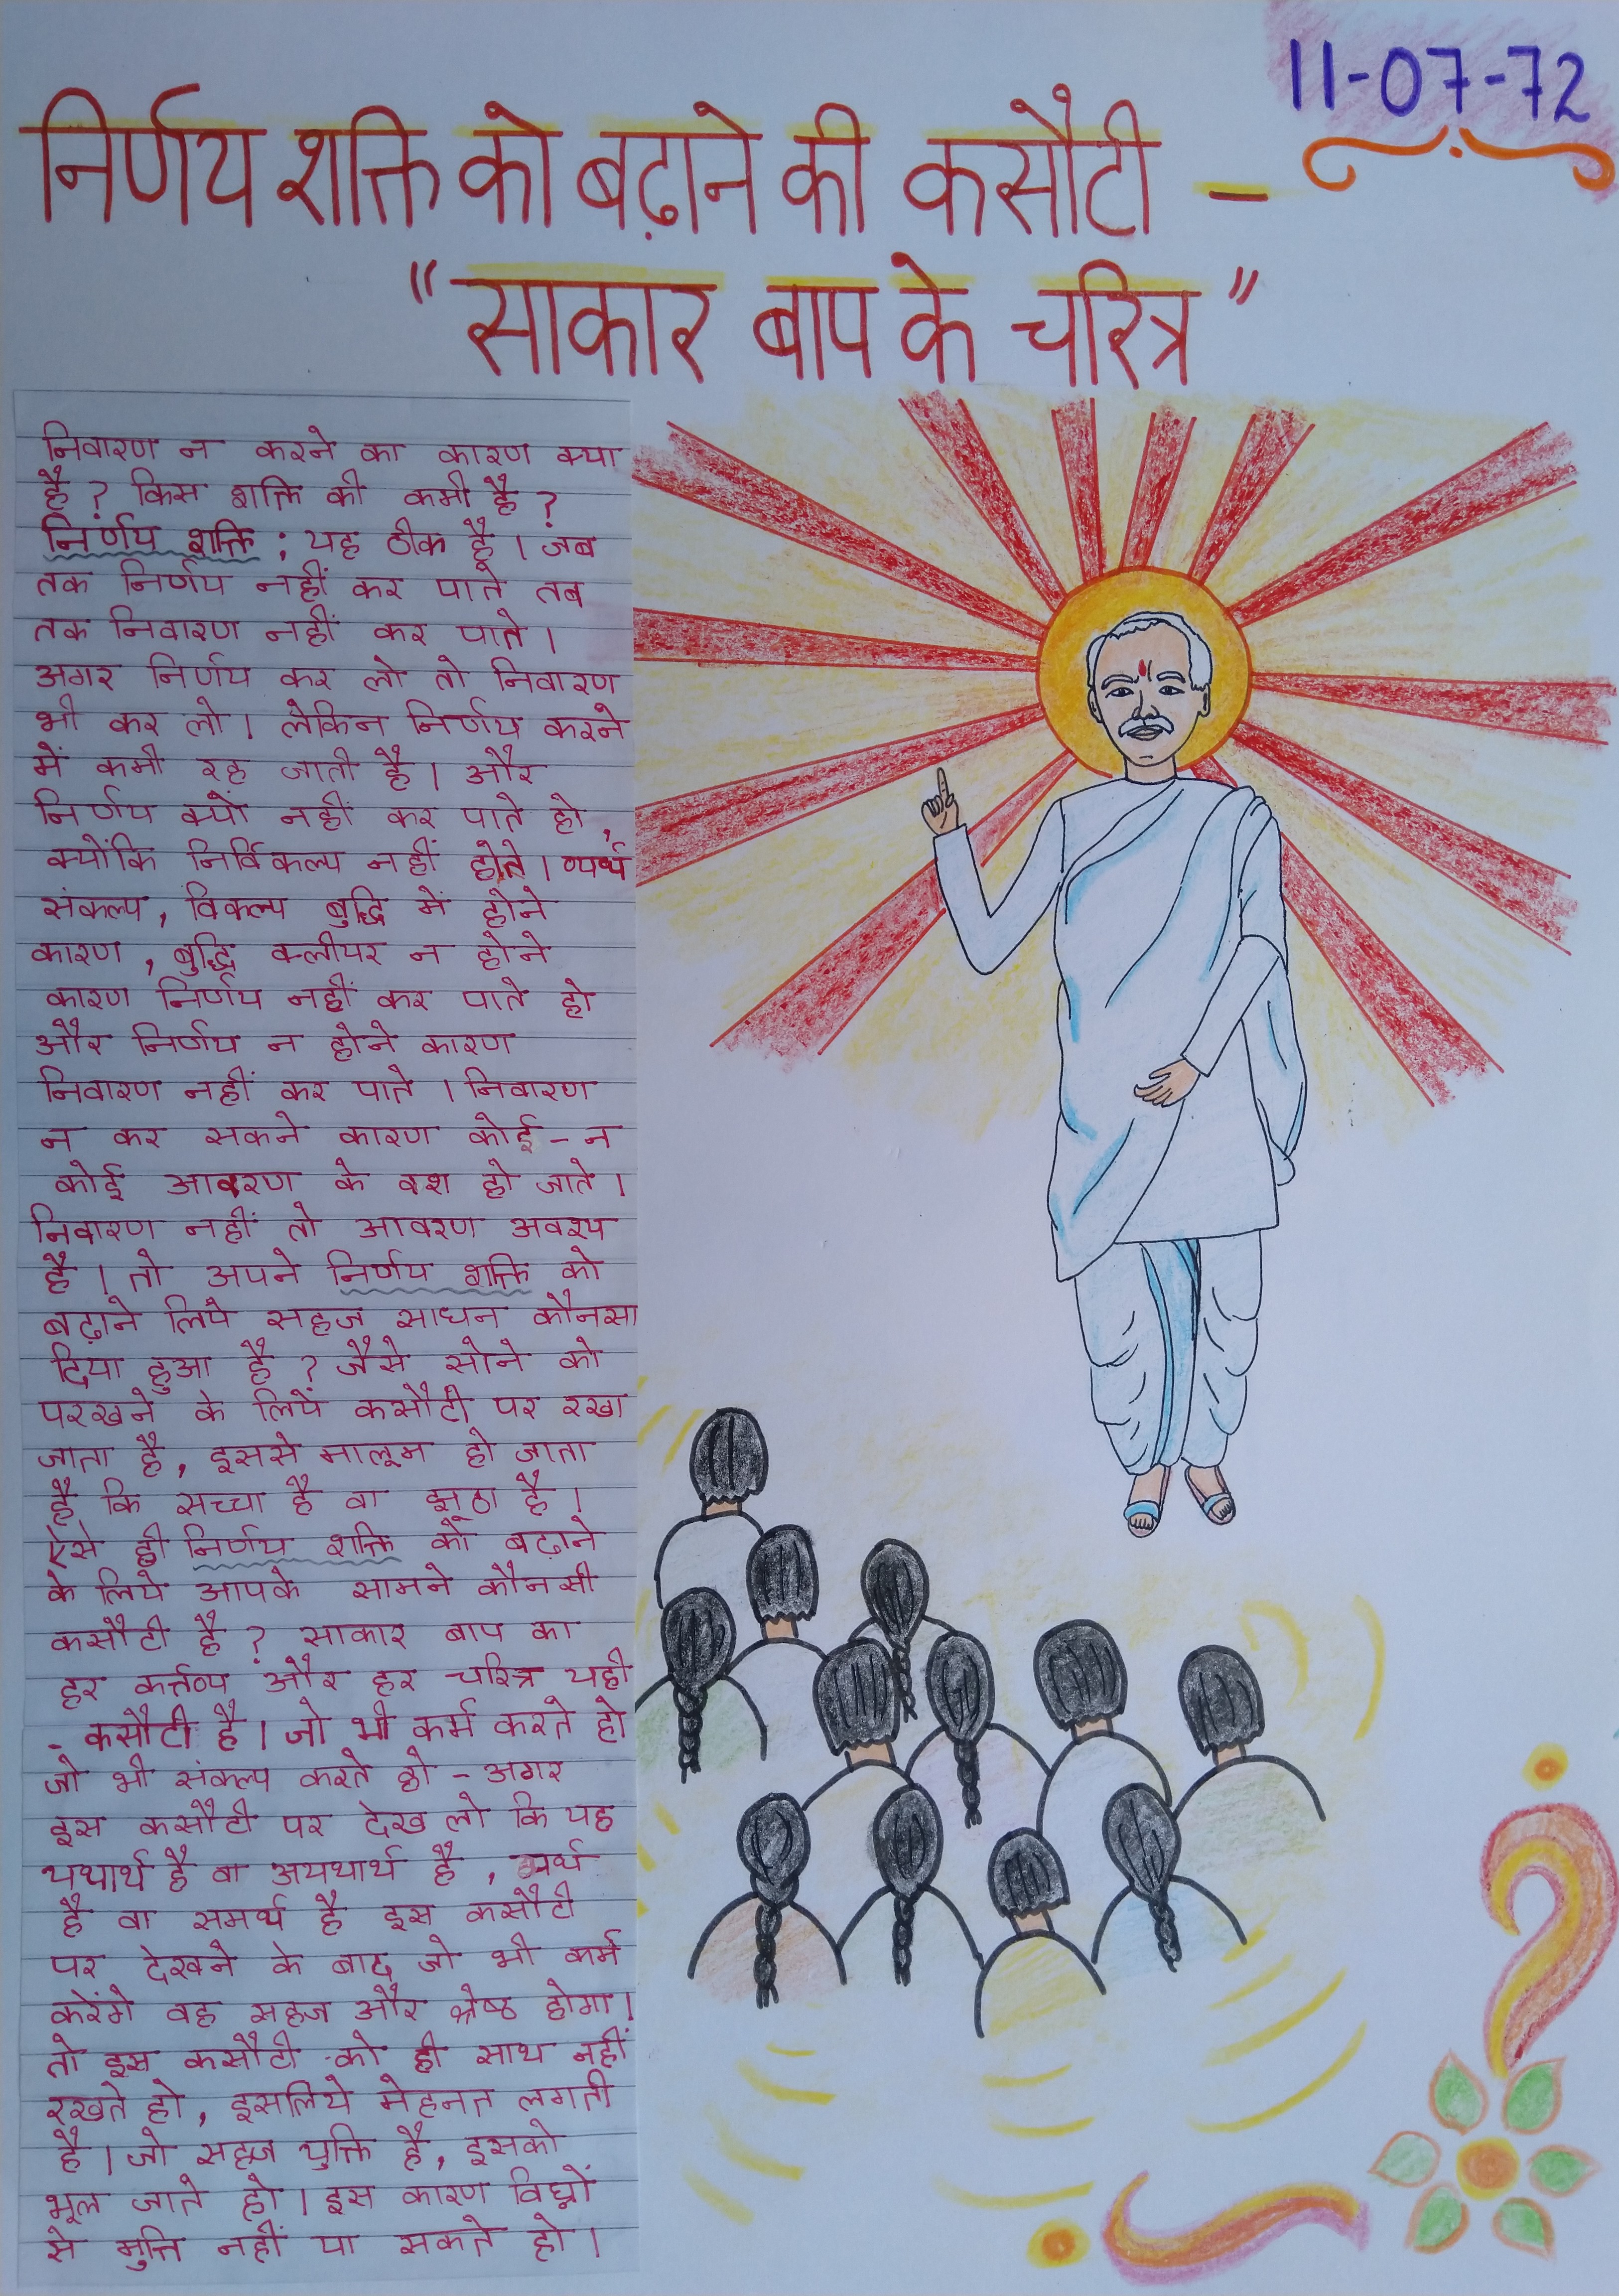 11-07-72
निर्णय शक्ति को बढ़ाने की कसौटी -
"साकार बाप के चरित्र"
निवारण न करने का कारण क्या
है ? किस शक्ति की कमी है ?
निर्णय शक्ति ; यह ठीक है । जब
तक निर्णय नहीं कर पाते तब
तक निवारण नहीं कर पाते ।
अगर निर्णय कर लो तो निवारण
भी कर लो । लेकिन निर्णय करने
में कमी रह जाती है । और
निर्णय क्यों नहीं कर पाते हो ,
क्योंकि निर्विकल्प नहीं होते । व्यर्थ
संकल्प, विकल्प बुद्धि में होने
कारण , बुद्धि क्लीयर न होने
कारण निर्णय नहीं कर पाते हो
और निर्णय न होने कारण
निवारण नहीं कर पाते । निवारण
न कर सकने कारण कोई - न
कोई आवरण के वश हो जाते ।
निवारण नहीं तो आवरण अवश्य
है । तो अपने निर्णय शक्ति को
बढ़ाने लिये सहज साधन कौनसा
दिया हुआ है ? जैसे सोने को
परखने के लिये कसौटी पर रखा
जाता है , इससे मालूम हो जाता
है कि सच्चा है वा झूठा है ।
ऐसे ही निर्णय शक्ति को बढ़ाने
के लिये आपके सामने कौनसी
कसौटी है ? साकार बाप का
हर कर्त्तव्य और हर चरित्र यही
- कसौटी है । जो भी कर्म करते हो
जो भी संकल्प करते हो - अगर
इस कसौटी पर देख लो कि यह
यथार्थ है वा अयथार्थ है , व्यर्थ
है वा समर्थ है इस कसौटी
पर देखने के बाद जो भी कर्म
करेंगे वह सहज और श्रेष्ठ होगा ।
तो इस कसौटी को ही साथ नहीं
रखते हो , इसलिये मेहनत लगती
है । जो सहज युक्ति है , इसको
भूल जाते हो । इस कारण विघ्नों
से मुक्ति नहीं पा सकते हो ।